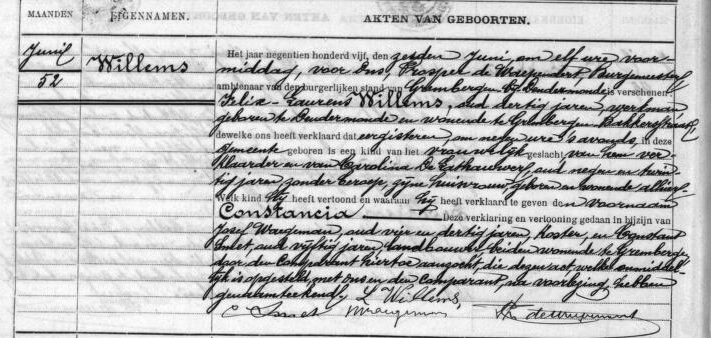 MAANDEN
EIGENNAMEN.
AKTEN VAN GEBOORTEN.
Junij
52
Willems
Het jaar negentien honderd vijf, den zesden Junij, om elf ure voor-
middag, voor Ons, Prosper de Burgemeester
ambtenaar van den burgerlijken stand van Grembergen bij Dendermonde is verschenen
Felix-Laurens Willems, oud dertig jaren, werkman
geboren te Dendermonde en wonende te Grembergen Bakkerstraat
dewelke ons heeft verklaard dat eergisteren om negen ure 's avonds, in deze
gemeente geboren is een kind van het vrouwelijk geslacht van hem ver-
klaarder en van Carolina De oud negen en twin-
tig jaren zonder beroep, zijne huisvrouw, geboren en wonende alhier
Welk kind hij heeft vertoond en waaraan hij heeft verklaard te geven den voornaam
Constancia Deze verklaring en vertooning gedaan in bijzijn van
Josef Waegeman, oud vier en dertig jaren, Koster, en Constant
Smet oud vijftig jaren, landbouwer beiden wonende te Grembergen
door den Comparant hiertoe aanzocht, die dezen act welke onmiddel-
lijk is opgesteld, met ons en den Comparant, na voorlezing, hebben
gehandteekend
L Willems,
C Smet Waegeman